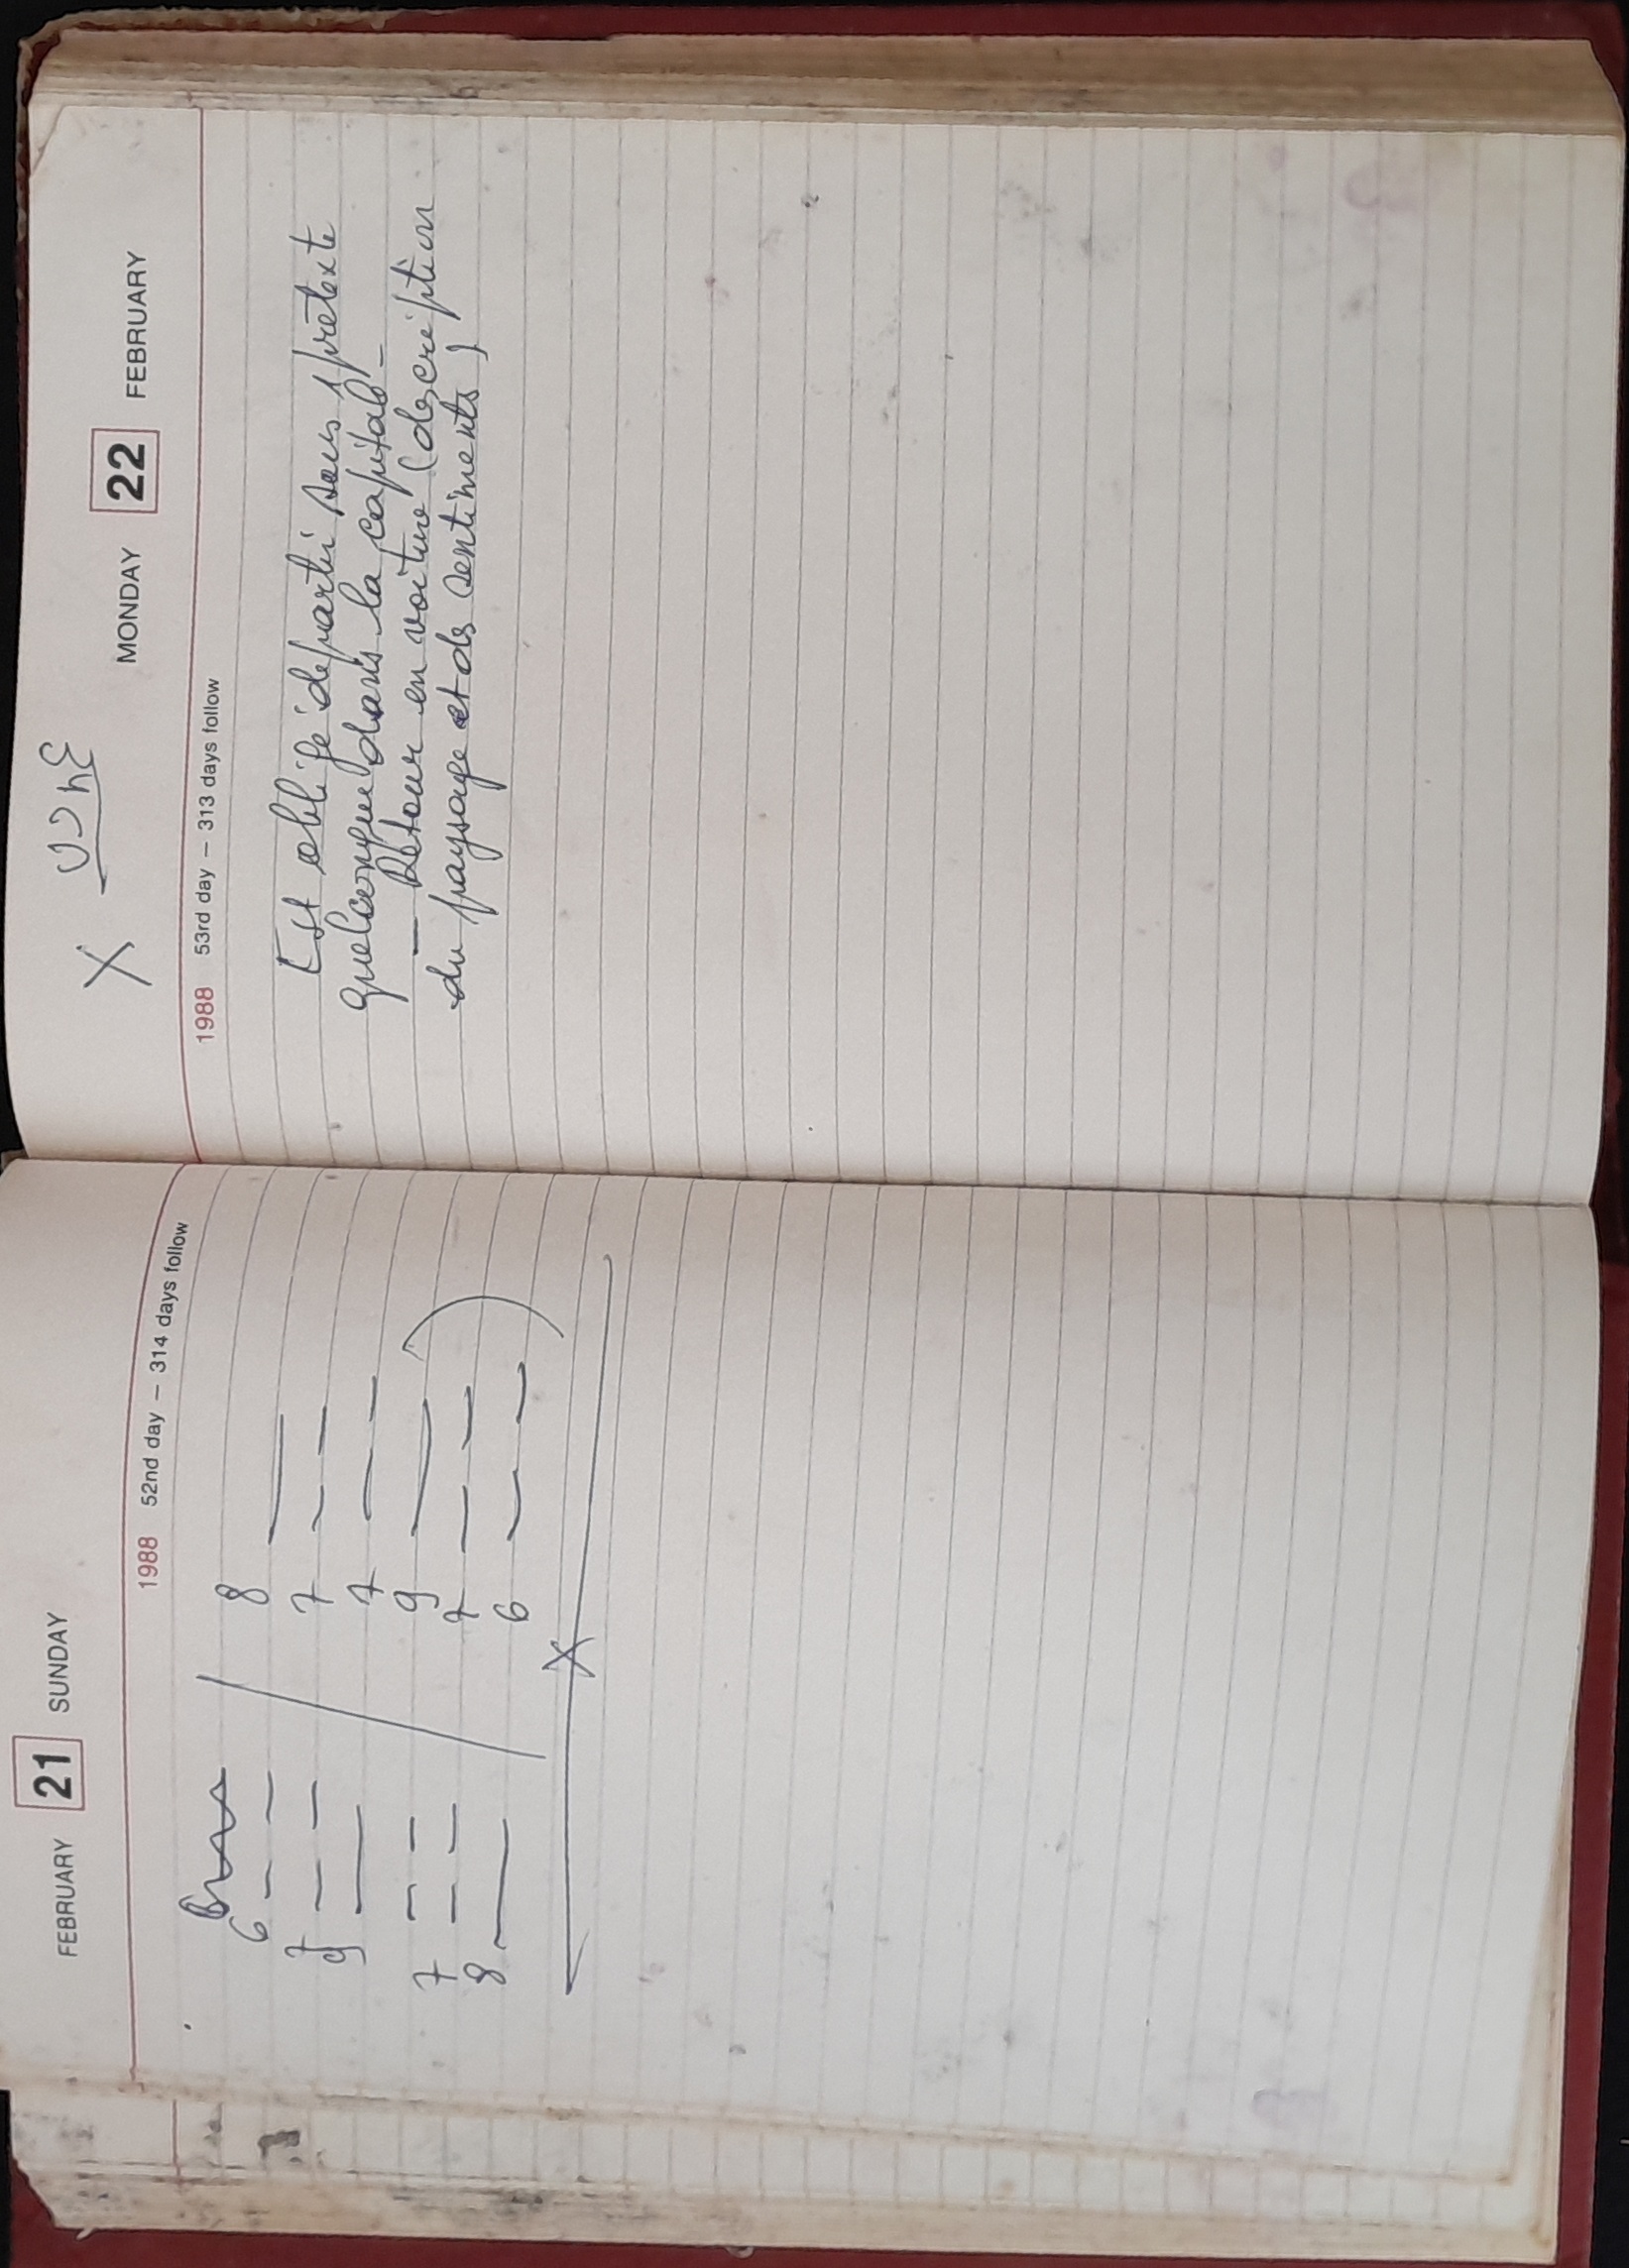 FEBRUARY 21 SUNDAY
1988 52nd day – 314 days follow
6 — —
7 — —
9 —
7 — —
8 —
8 —
7 — —
7 — —
9 —
7 — —
6 — —
X
X
MONDAY 22 FEBRUARY
1988 53rd day – 313 days follow
Est obligé de partir sous prétexte
quelconque dans la capitale –
– Retour en voiture (description
du paysage et des sentiments)